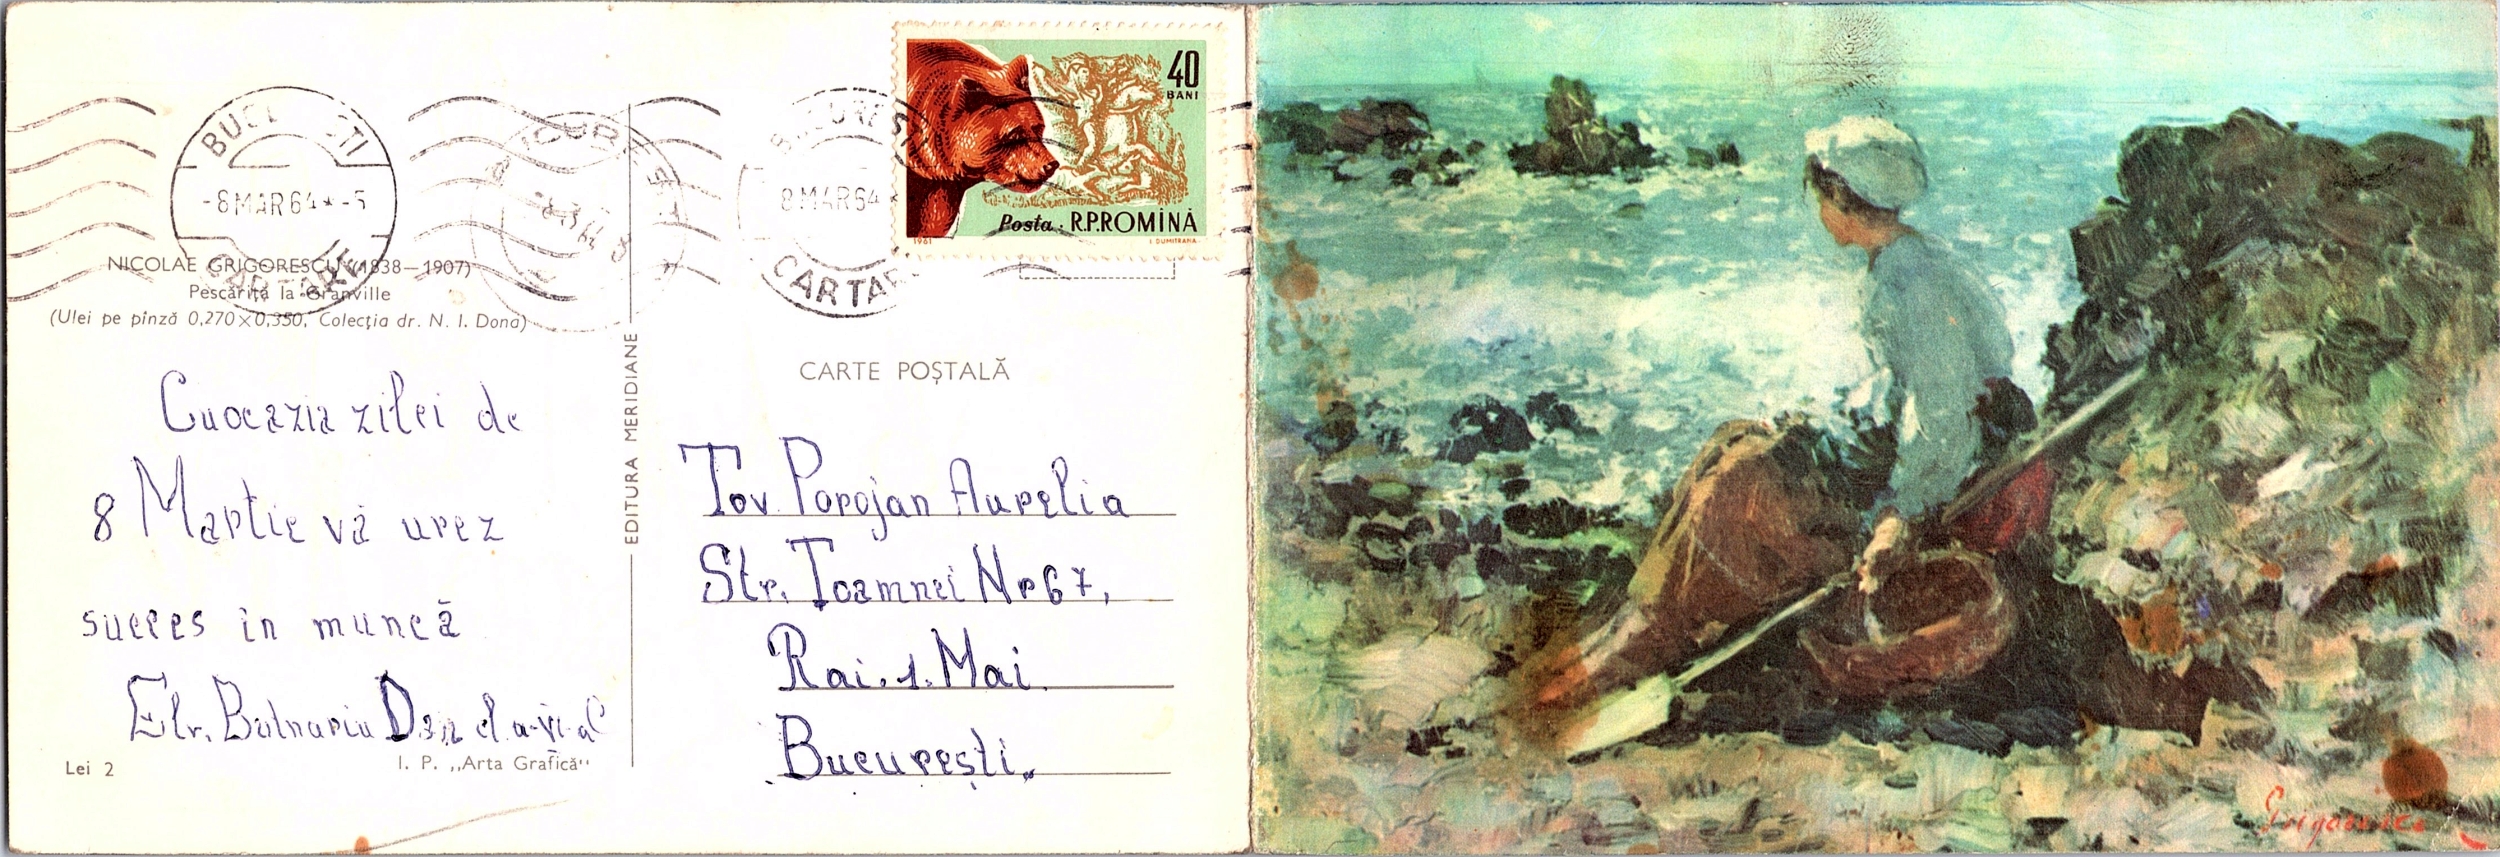 BUCUREȘTI
-8 MAR 64 * -5
CARTARE
BUCUREȘTI
BUCUREȘTI
8 MAR 64
CARTAR
40
BANI
Posta · R.P.ROMÎNĂ
1961
I. DUMITRANA
NICOLAE GRIGORESCU (1838—1907)
Pescăriță la Granville
(Ulei pe pînză 0,270×0,350, Colecția dr. N. I. Dona)
Cu ocazia zilei de
8 Martie vă urez
succes in muncă
Elv.
I. P. „Arta Grafică“
Lei 2
EDITURA MERIDIANE
CARTE POȘTALĂ
Tov Popojan Aurelia
Str. Toamnei Nr 67,
Rai. 1. Mai
București.
Grigorescu